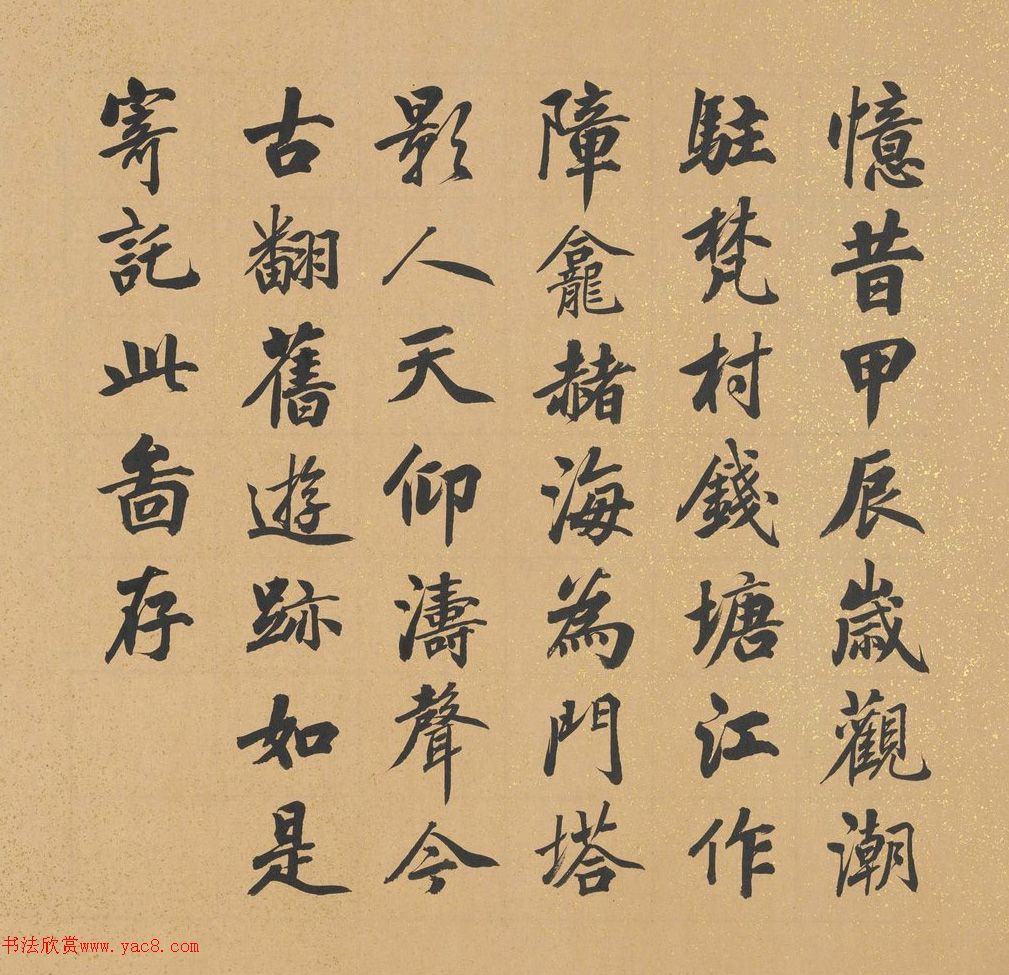 憶昔甲辰歲觀潮
駐梵村錢塘江作
障龕赭海為門塔
影人天仰濤聲今
古翻舊遊跡如是
寄託此啚存
书法欣赏www.yac8.com